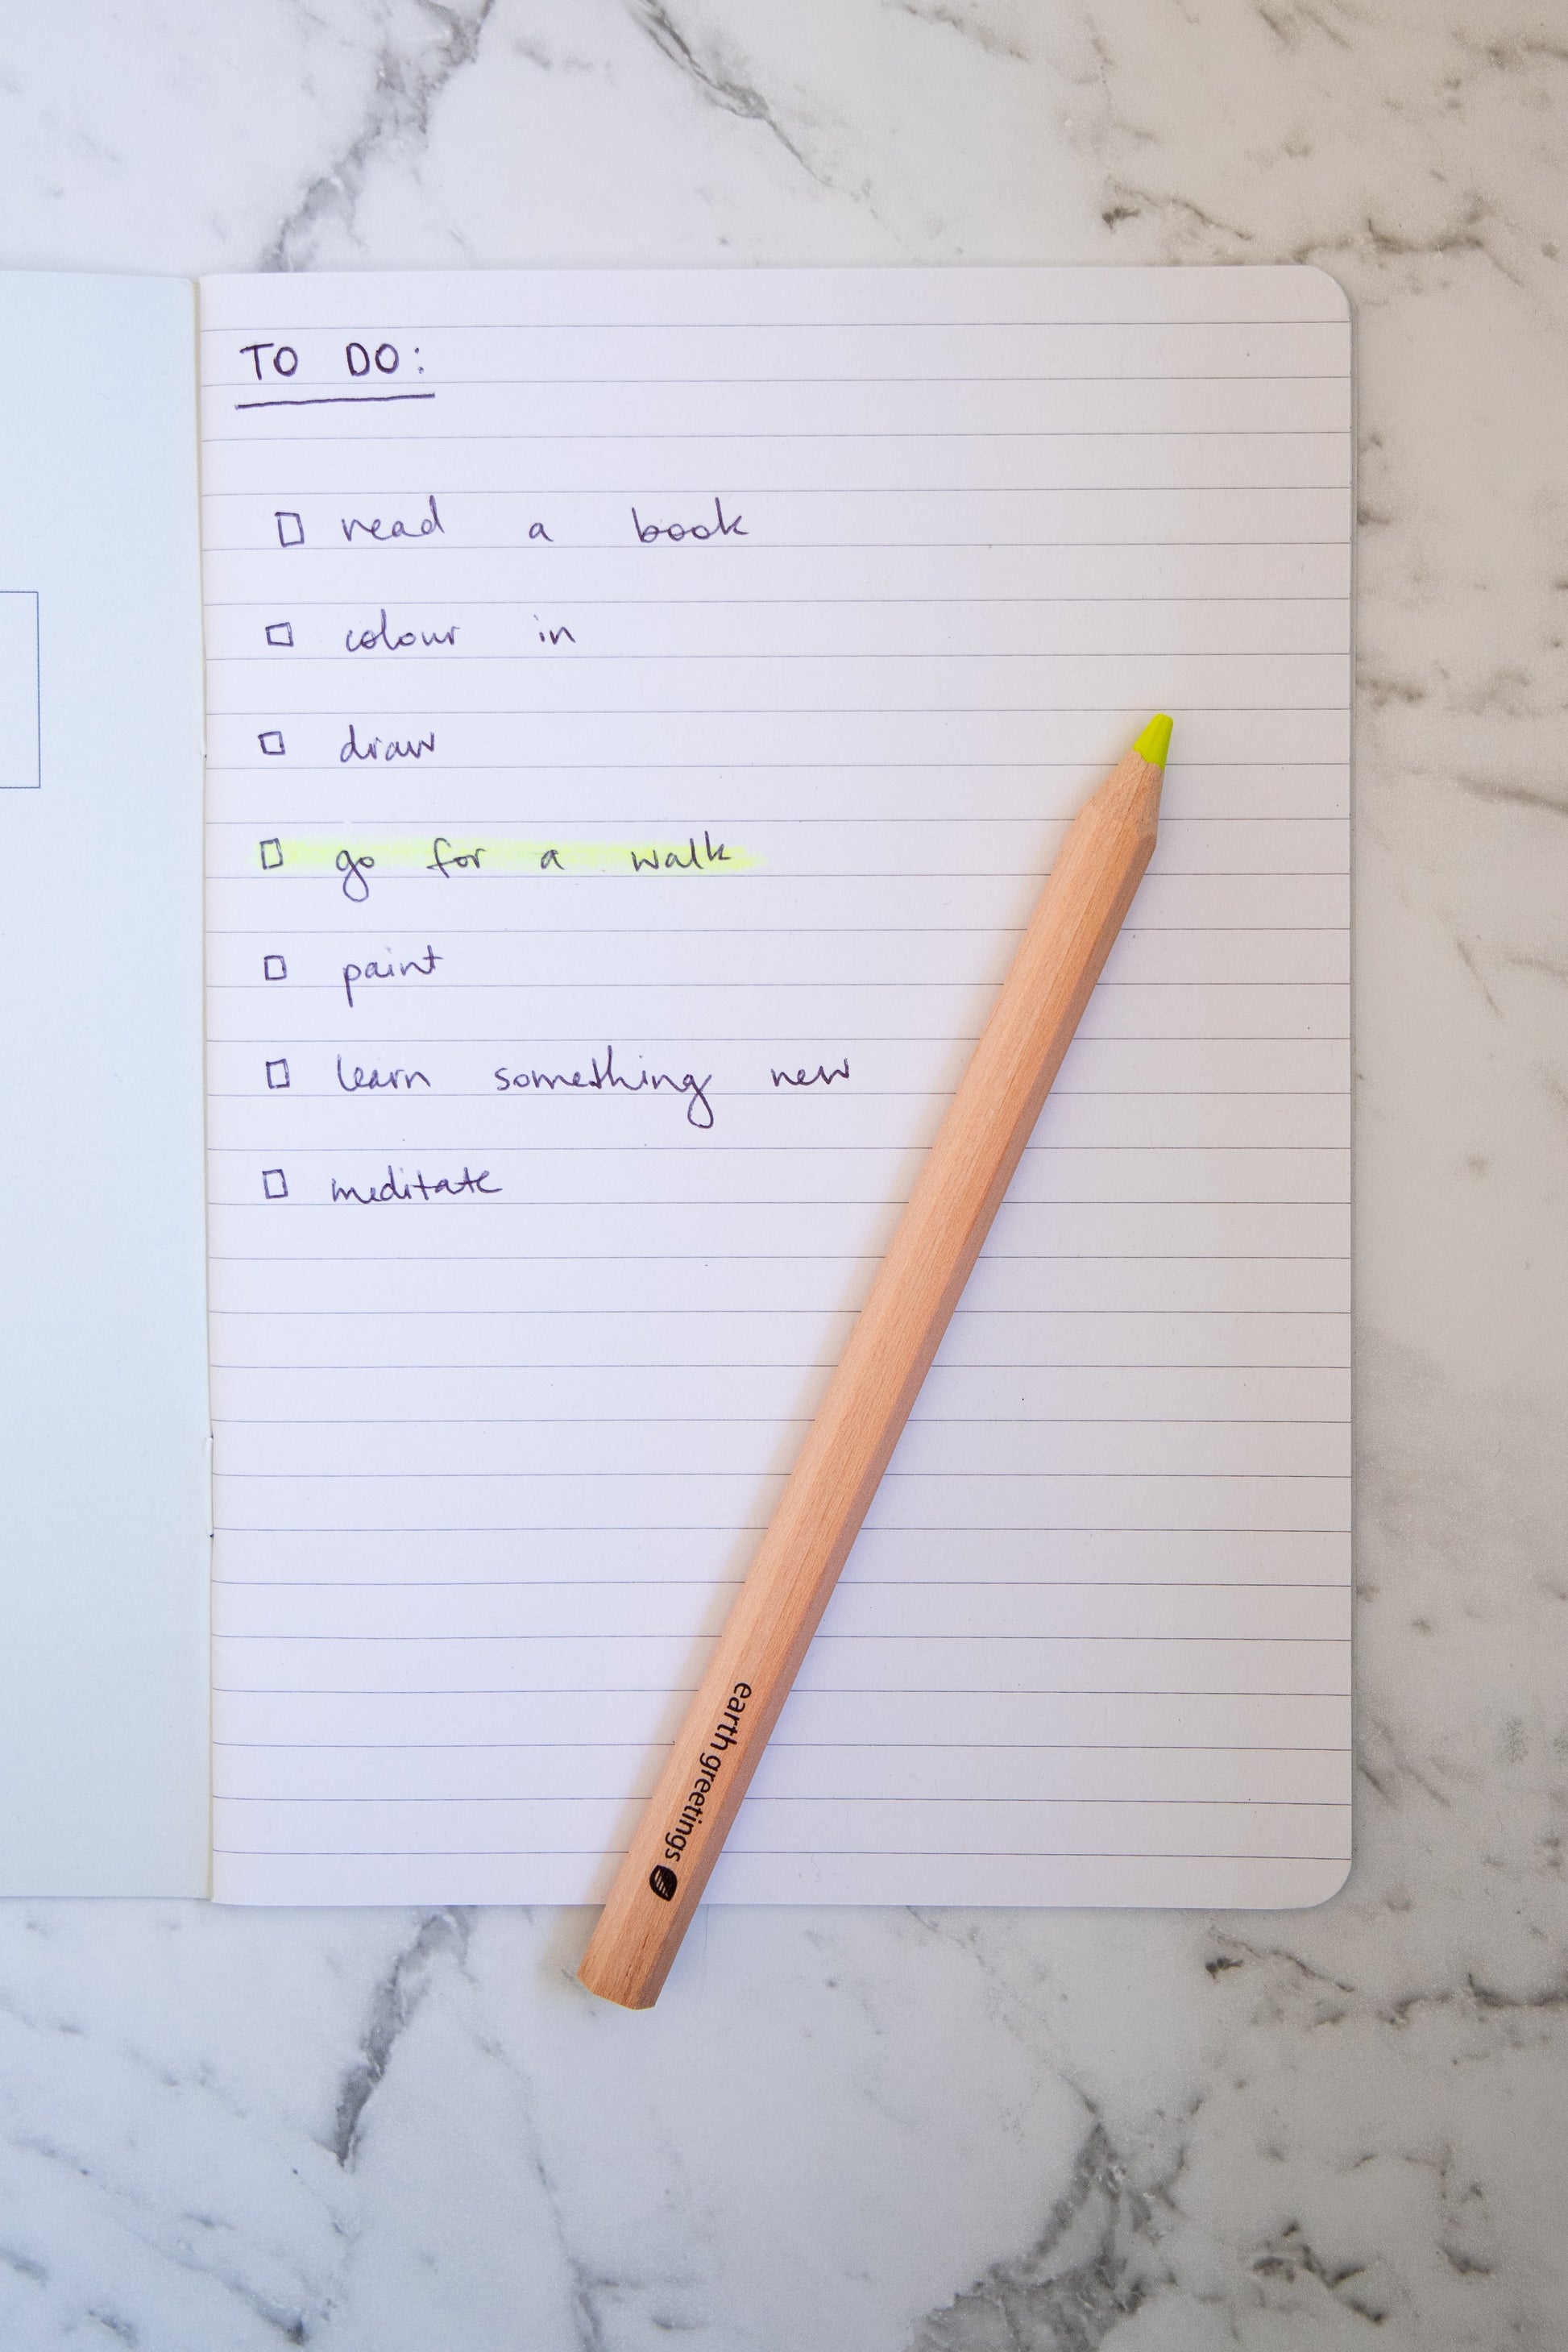 TO DO:
☐ read a book
☐ colour in
☐ draw
☐ go for a walk
☐ paint
☐ learn something new
☐ meditate
earth greetings